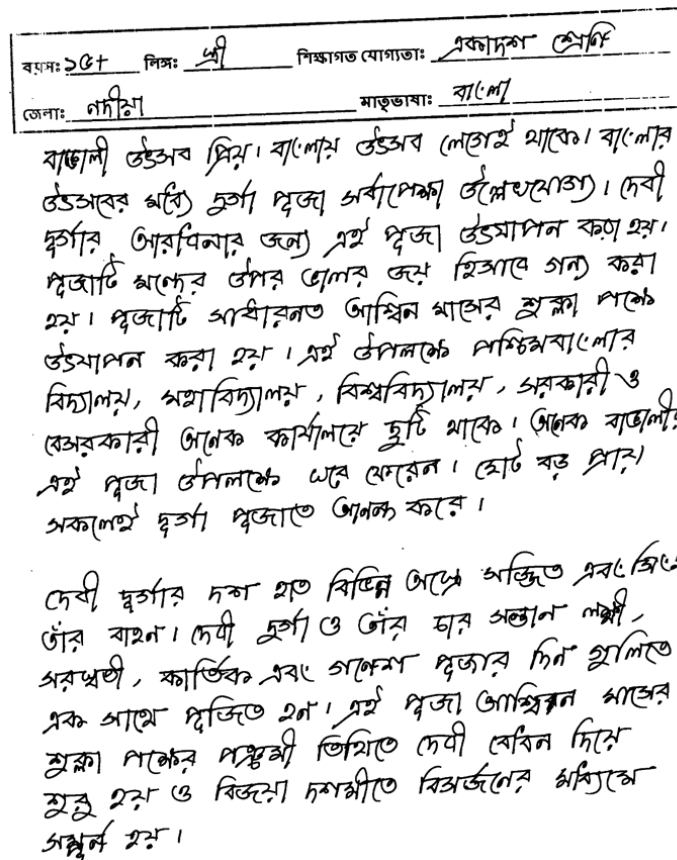 বয়স: ১৫+ লিঙ্গ: স্ত্রী শিক্ষাগত যোগ্যতা: একাদশ শ্রেণি
জেলা: নদীয়া মাতৃভাষা: বাংলা
বাঙালী উৎসব প্রিয়। বাংলায় উৎসব লেগেই থাকে। বাংলার
উৎসবের মধ্যে দুর্গা পূজা সর্বাপেক্ষা উল্লেখযোগ্য। দেবী
দুর্গার আরাধনার জন্য এই পূজা উৎযাপন করা হয়।
পূজাটি মন্দের উপর ভালর জয় হিসাবে গন্য করা
হয়। পূজাটি সাধারনত আশ্বিন মাসের শুক্লা পক্ষে
উৎযাপন করা হয়। এই উপলক্ষে পশ্চিমবাংলার
বিদ্যালয়, মহাবিদ্যালয়, বিশ্ববিদ্যালয়, সরকারী ও
বেসরকারী অনেক কার্যালয়ে ছুটি থাকে। অনেক বাঙালীর
এই পূজা উপলক্ষে ঘরে ফেরেন। ছোট বড় প্রায়
সকলেই দুর্গা পূজাতে আনন্দ করে।
দেবী দুর্গার দশ হাত বিভিন্ন অস্ত্রে সজ্জিত এবং সিংহ
তাঁর বাহন। দেবী দুর্গা ও তাঁর চার সন্তান লক্ষ্মী,
সরস্বতী, কার্তিক এবং গনেশ পূজার দিন গুলিতে
এক সাথে পূজিত হন। এই পূজা আশ্বিন মাসের
শুক্লা পক্ষের পঞ্চমী তিথিতে দেবী বোধন দিয়ে
শুরু হয় ও বিজয়া দশমীতে বিসর্জনের মধ্যমে
সম্পূর্ন হয়।